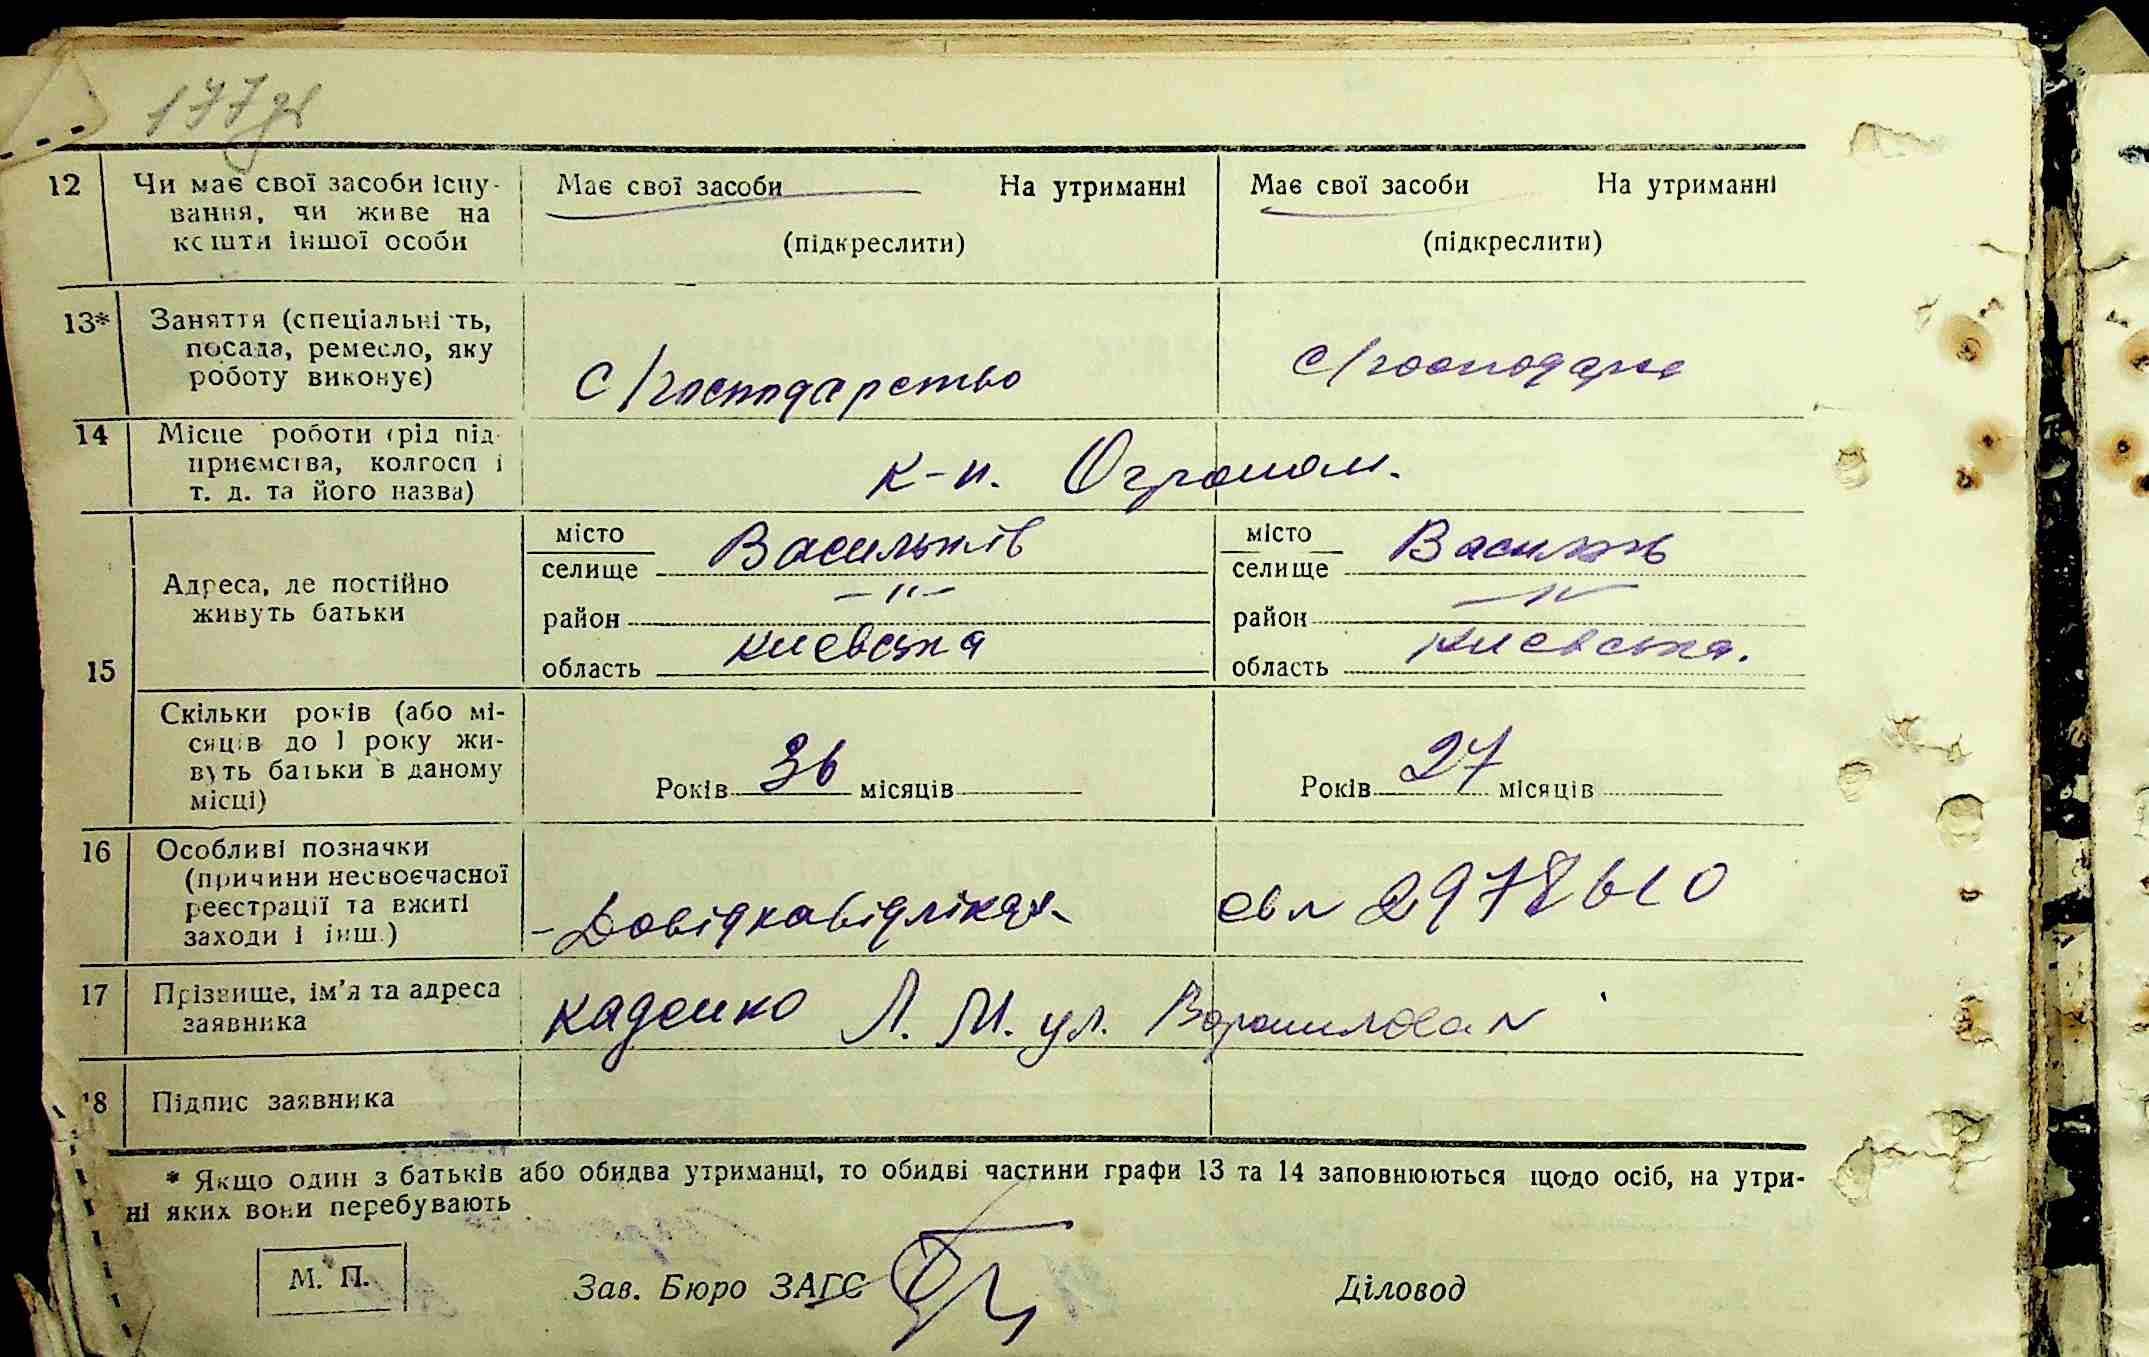 177
12 Чи має свої засоби існу- Має свої засоби На утриманні Має свої засоби На утриманні
вання, чи живе на
кошти іншої особи (підкреслити) (підкреслити)
13* Заняття (спеціальність,
посада, ремесло, яку
роботу виконує) С/господарство С/господарка
14 Місце роботи (рід під-
приємства, колгосп і к-п.
т. д. та його назва)
15 Адреса, де постійно живуть батьки
місто Васильків місто Васильків
селище селище
район -"- район -"-
область Киевська область Киевська.
Скільки років (або мі-
сяців до 1 року жи-
вуть батьки в даному
місці) Років 36 місяців Років 27 місяців
16 Особливі позначки
(причини несвоєчасної
реєстрації та вжиті
заходи і інш.) - Довідка від лікаря
17 Прізвище, ім'я та адреса
заявника Каденко Л. М. ул. Ворошилова N
18 Підпис заявника
* Якщо один з батьків або обидва утриманці, то обидві частини графи 13 та 14 заповнюються щодо осіб, на утри-
ні яких вони перебувають
М. П. Зав. Бюро ЗАГС Діловод